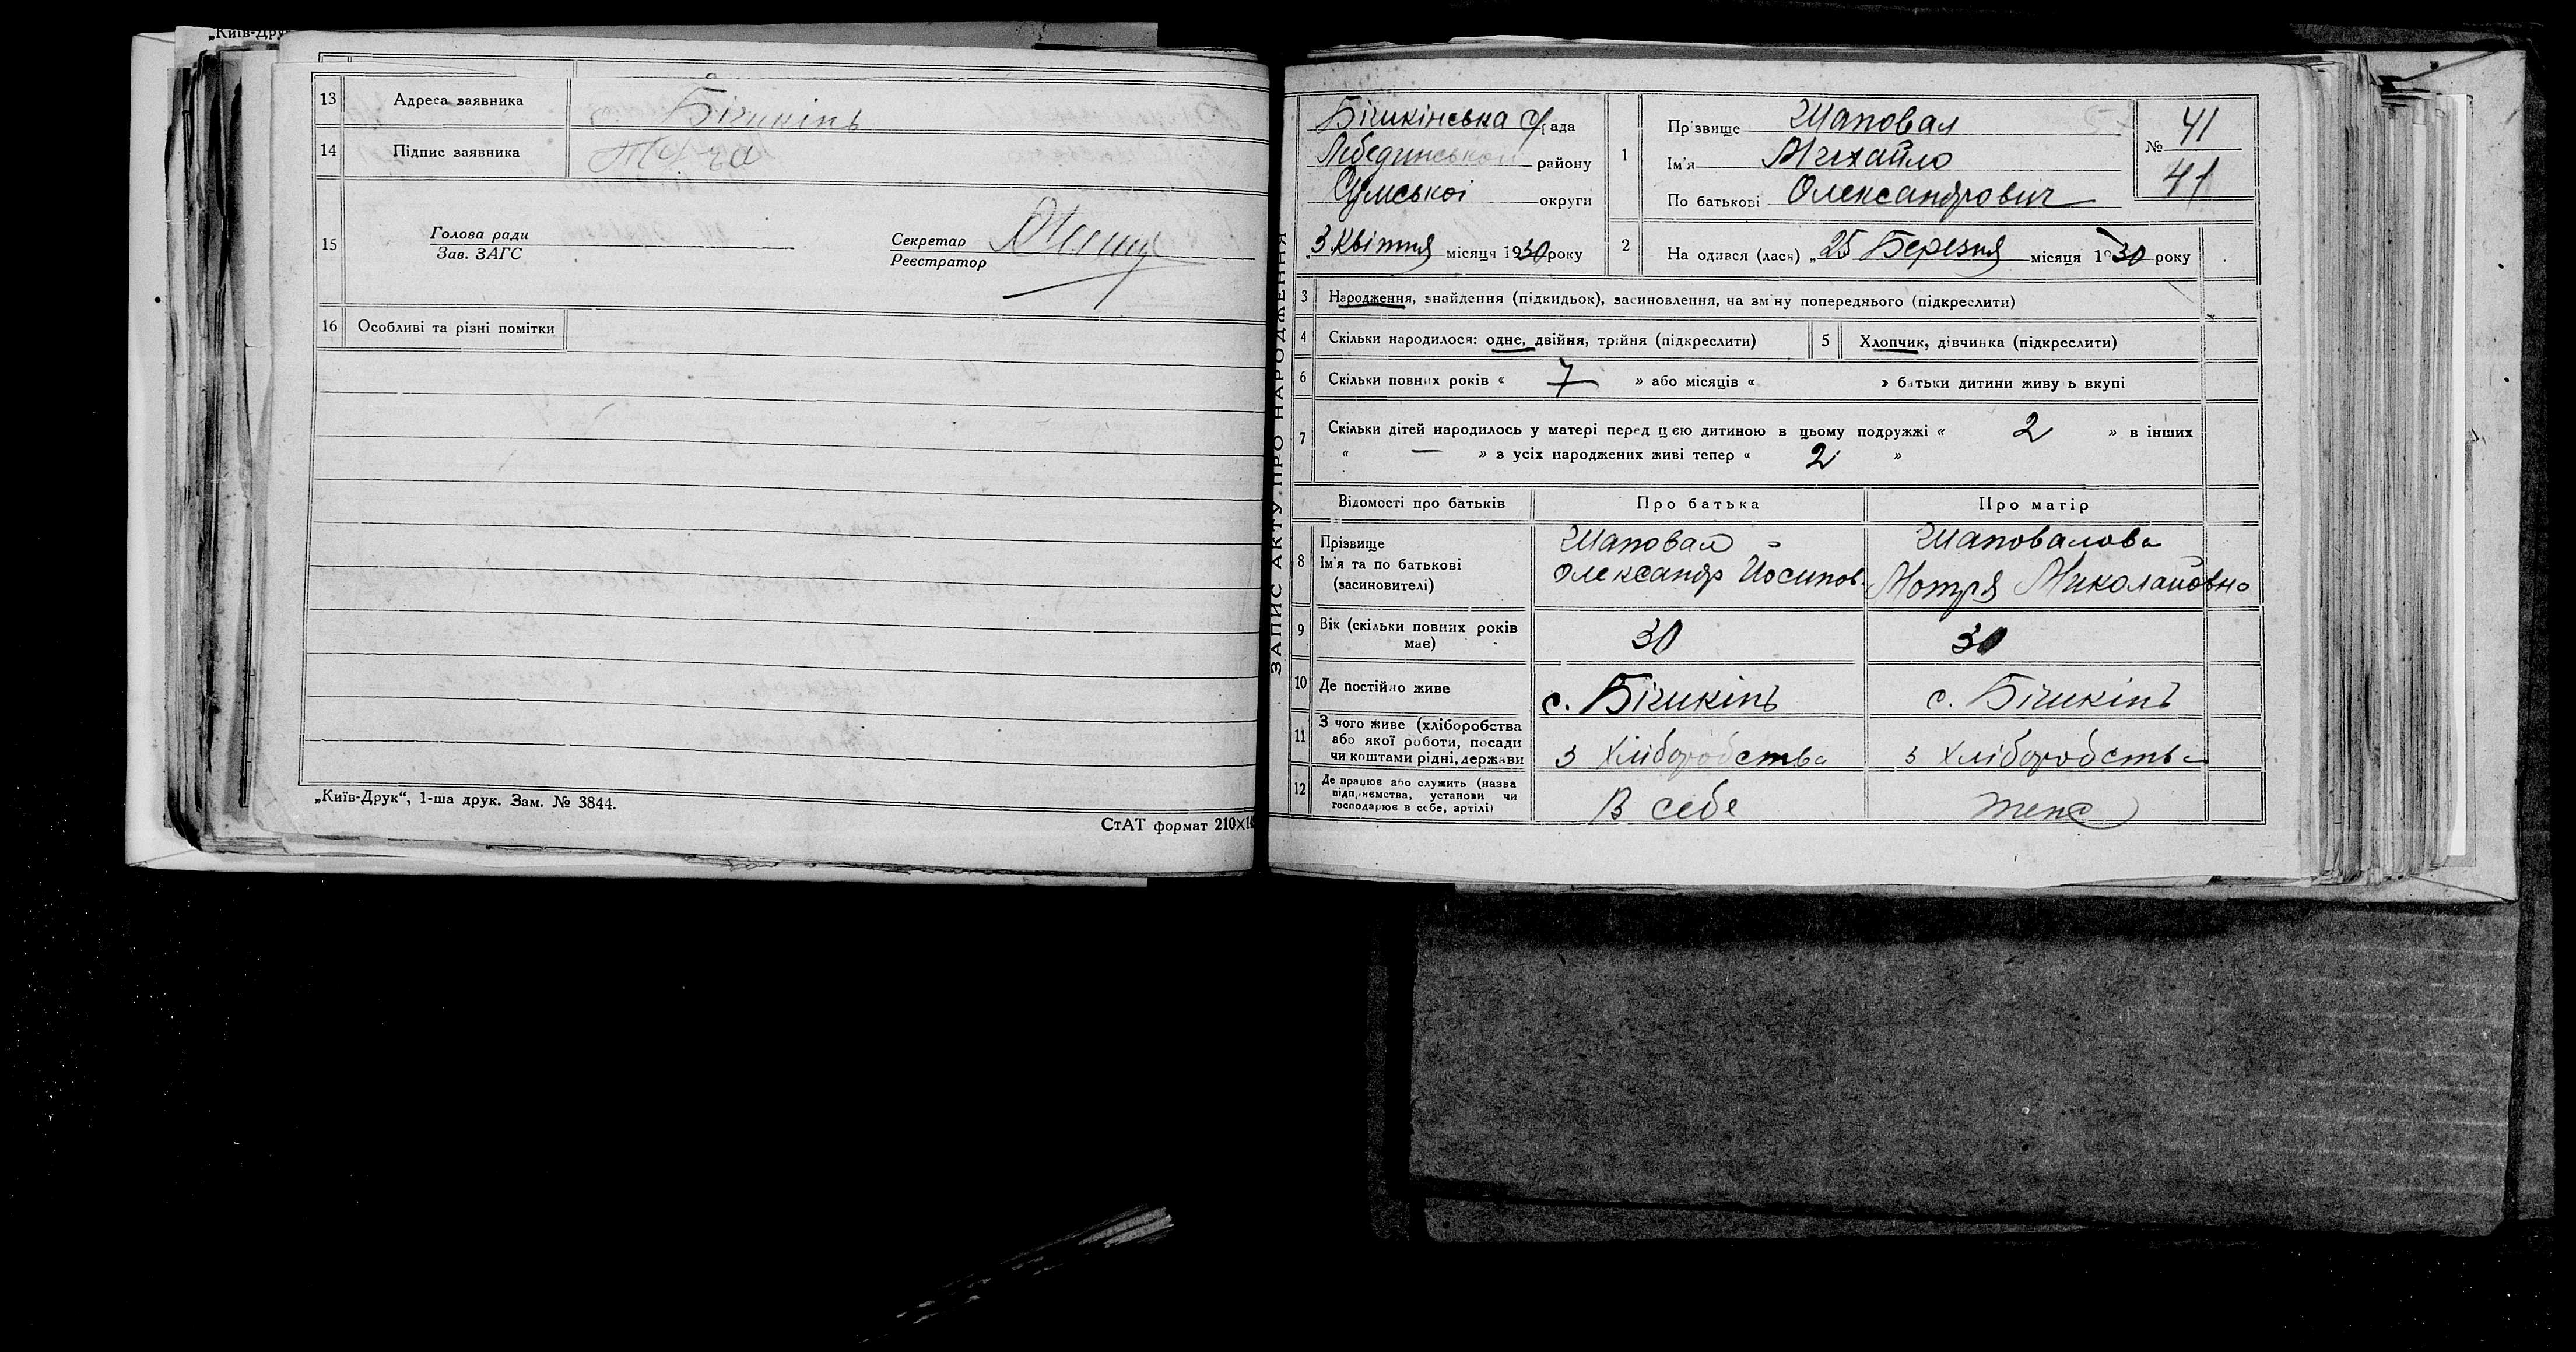 „Київ-Дру
13 Адреса заявника Бішкінь
14 Підпис заявника
15 Голова ради
Зав. ЗАГС
Секретар
Реєстратор
16 Особливі та різні помітки
„Київ-Друк“, 1-ша друк. Зам. № 3844.
СтАТ формат 210×14
ЗАПИС АКТУ ПРО НАРОДЖЕННЯ
Бішкінська С/рада
Лебединської району
Сумської округи
„3 Квітня місяця 1930 року
1 Прізвище Шаповал
Ім'я Михайло
По батькові Олександрович
№ 41
41
2 Народився (лася) „25 Березня місяця 1930 року
3 Народження, знайдення (підкидьок), засиновлення, на зміну попереднього (підкреслити)
4 Скільки народилося: одне, двійня, трійня (підкреслити) 5 Хлопчик, дівчинка (підкреслити)
6 Скільки повних років « 7 » або місяців « » батьки дитини живуть вкупі
7 Скільки дітей народилось у матері перед цією дитиною в цьому подружжі « 2 » в інших
« — » з усіх народжених живі тепер « 2 »
Відомості про батьків Про батька Про матір
8 Прізвище Ім'я та по батькові (засиновителі)
Шаповал Олександр Йосипов.
Шаповалова Мотря Миколайовна
9 Вік (скільки повних років має) 30 30
10 Де постійно живе с. Бішкінь с. Бішкінь
11 З чого живе (хліборобства
або якої роботи, посади
чи коштами рідні, держави
з хліборобства з хліборобства
12 Де працює або служить (назва
підприємства, установи чи
господарює в себе, артілі)
В себе теж